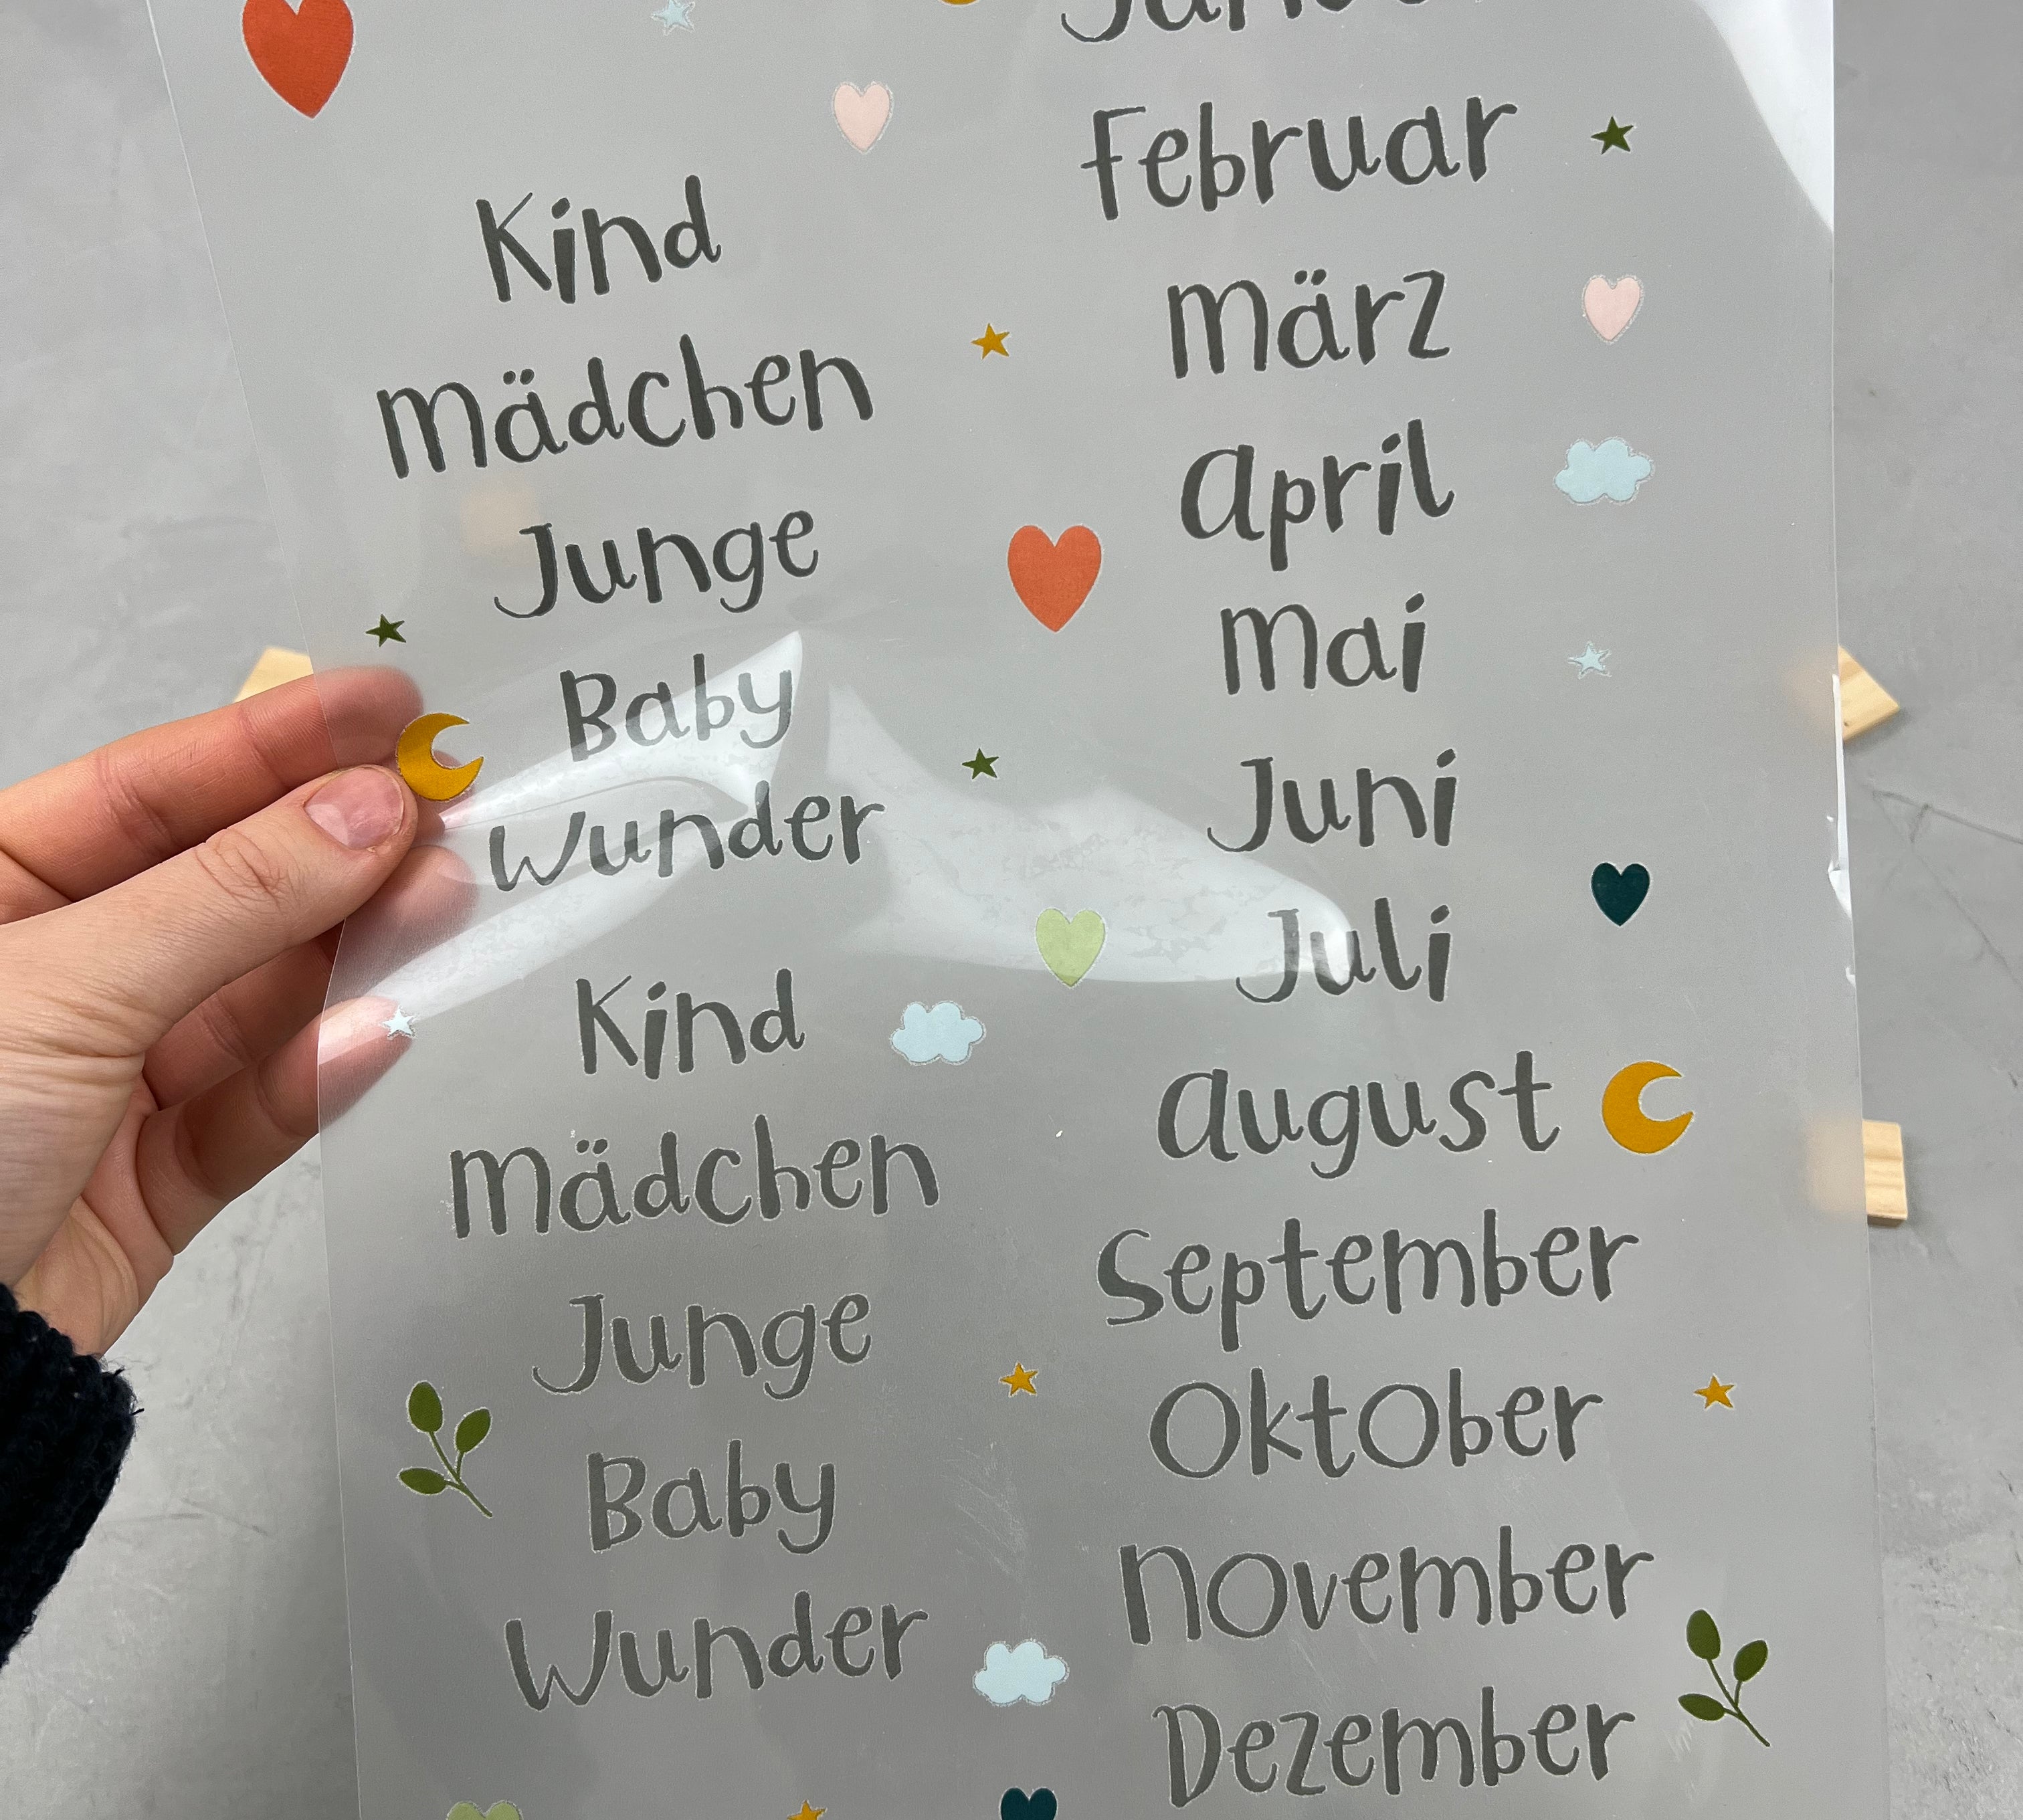 Kind
Mädchen
Junge
Baby
Wunder
Kind
Mädchen
Junge
Baby
Wunder
Februar
März
April
Mai
Juni
Juli
August
September
Oktober
November
Dezember